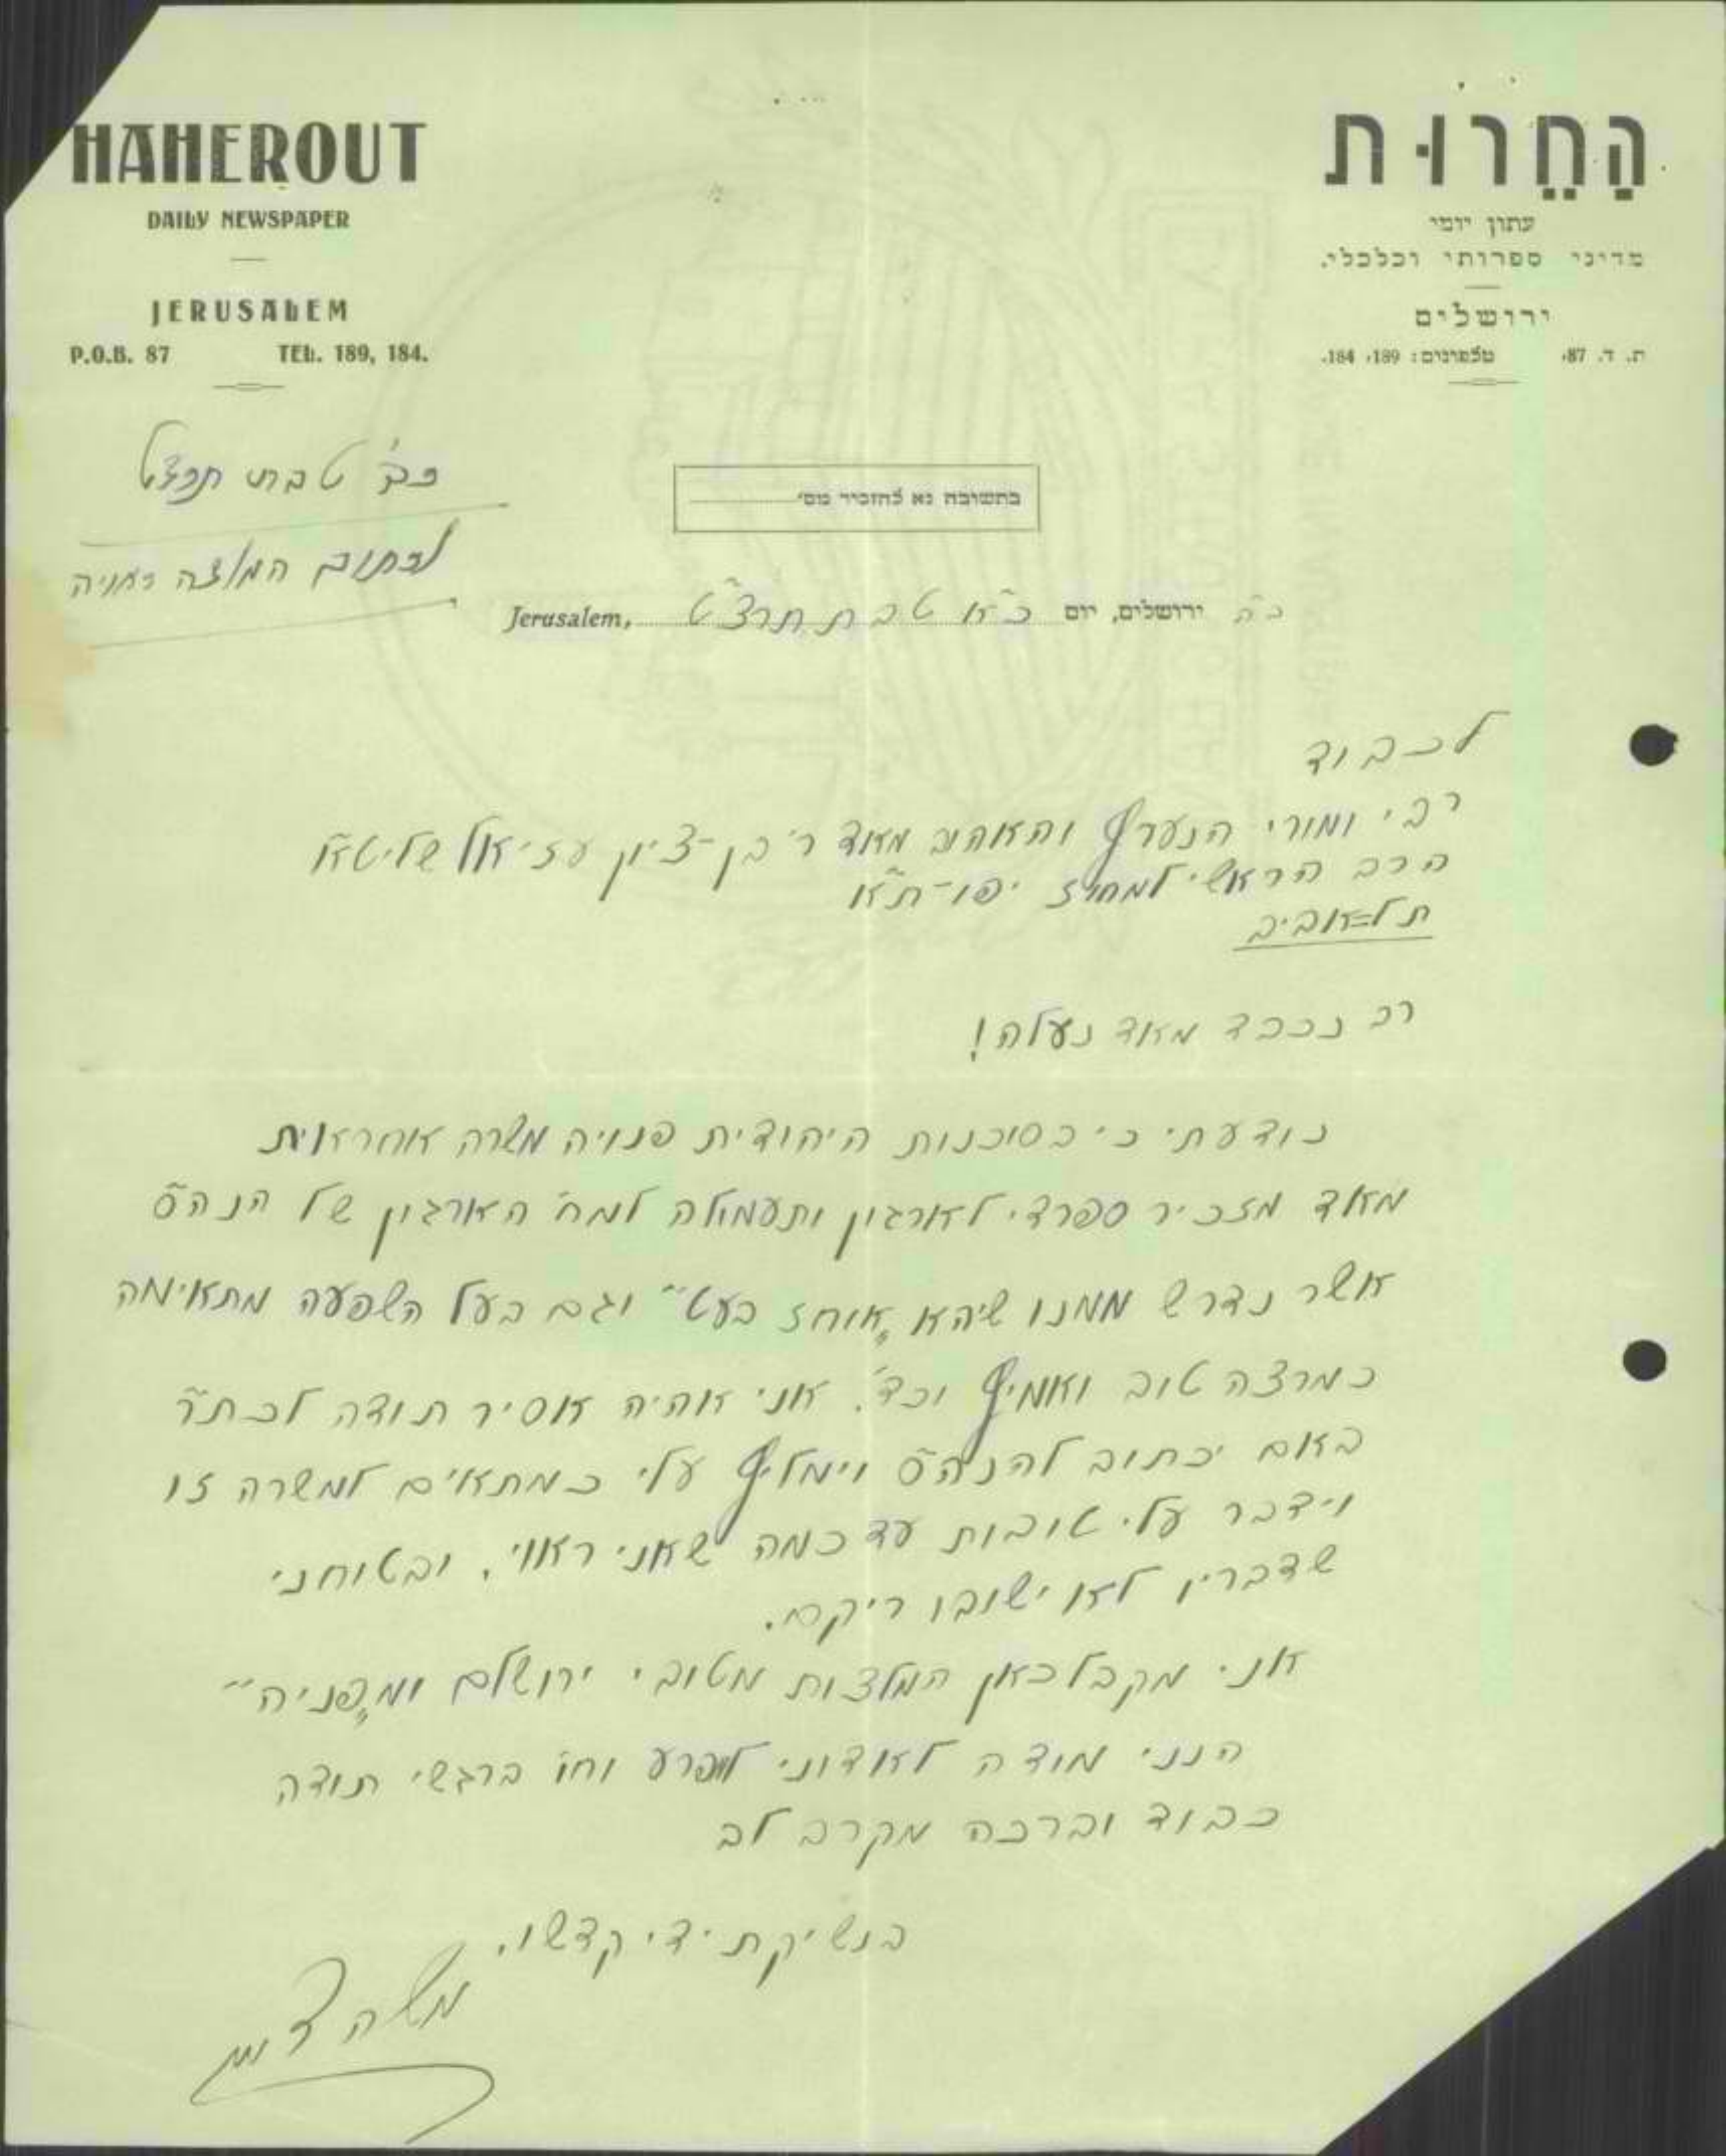 HAHEROUT
DAILY NEWSPAPER
JERUSALEM
P.O.B. 87 TEL. 189, 184.
הַחֵרוּת
עתון יומי
מדיני ספרותי וכלכלי.
ירושלים
ת. ד. 87, טלפונים: 189, 184.
טבת תרצ"ט
לכתוב המלצה
בתשובה נא להזכיר מס'
ב"ה ירושלים, יום כ"א טבת תרצ"ט Jerusalem,
לכבוד
רבי ומורי הנערץ והאהוב מאוד ר' בן-ציון עזיאל שליט"א
הרב הראשי למחוז יפו-ת"א
תל=אביב
רב נכבד מאוד נעלה!
נודעתי כי בסוכנות היהודית פנויה משרה אחראית
מאוד מזכיר ספרדי לארגון ותעמולה למח' הארגון של הנה"ס
אשר נדרש ממנו שיהא „אוחז בעט" וגם בעל השפעה מתאימה
כמרצה טוב ואמיץ וכד'. אני אהיה אסיר תודה לכת"ר
באם יכתוב להנה"ס וימליץ עלי כמתאים למשרה זו
וידבר עלי טובות עד כמה שאני ראוי, ובטוחני
שדבריו לא ישובו ריקם.
אני מקבל כאן המלצות מטובי ירושלם ומ„פניה"
הנני מודה לאדוני למפרע וחו' ברגשי תודה
כבוד וברכה מקרב לב
בנשיקת ידי קדשו,
משה